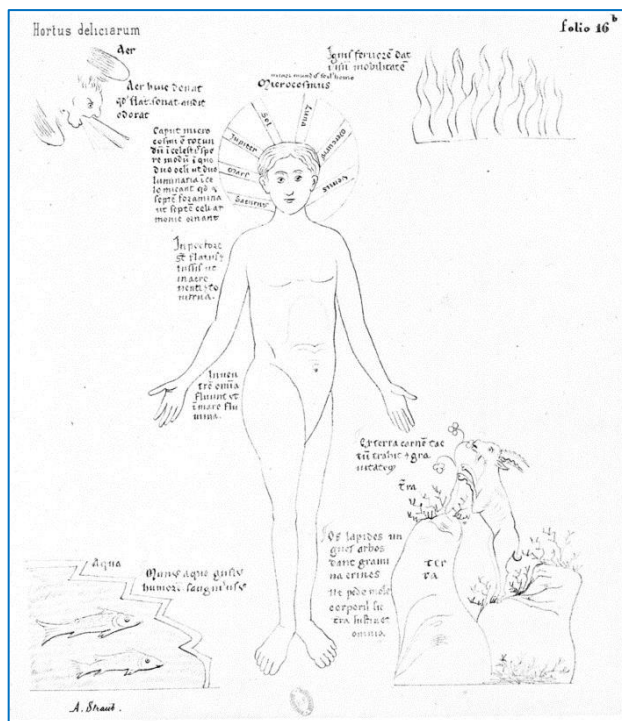 Hortus deliciarum
folio 16 b
Aer
Aer huic donat
qd flat sonat audit
odorat
Ignis fervore dat
visu mobilitate
Microcosmus
Jupiter
Sol
Luna
Mercurius
Mars
Venus
Saturnus
Caput micro
cosmi e rotun
du i celestis spe
re modu i quo
duo oculi ut duo
luminaria i ce
lo micant qd &
septe foramina
ut septe celi ar
monie ornant
In pectore
st flatus &
tussis ut
in aere
venti & to
nitrua.
In ven
tre omia
fluunt ut
i mare flu
mina.
Ex terra carne tac
tu trahit & gra
vitate
tra
Os lapides un
gues arbos
dant grami
na crines
Ut pede mole
corporis sic
tra sustinet
omnia
ter
ra
Aqua
Munus aque gustus
humor sanguinis
A. Straub.